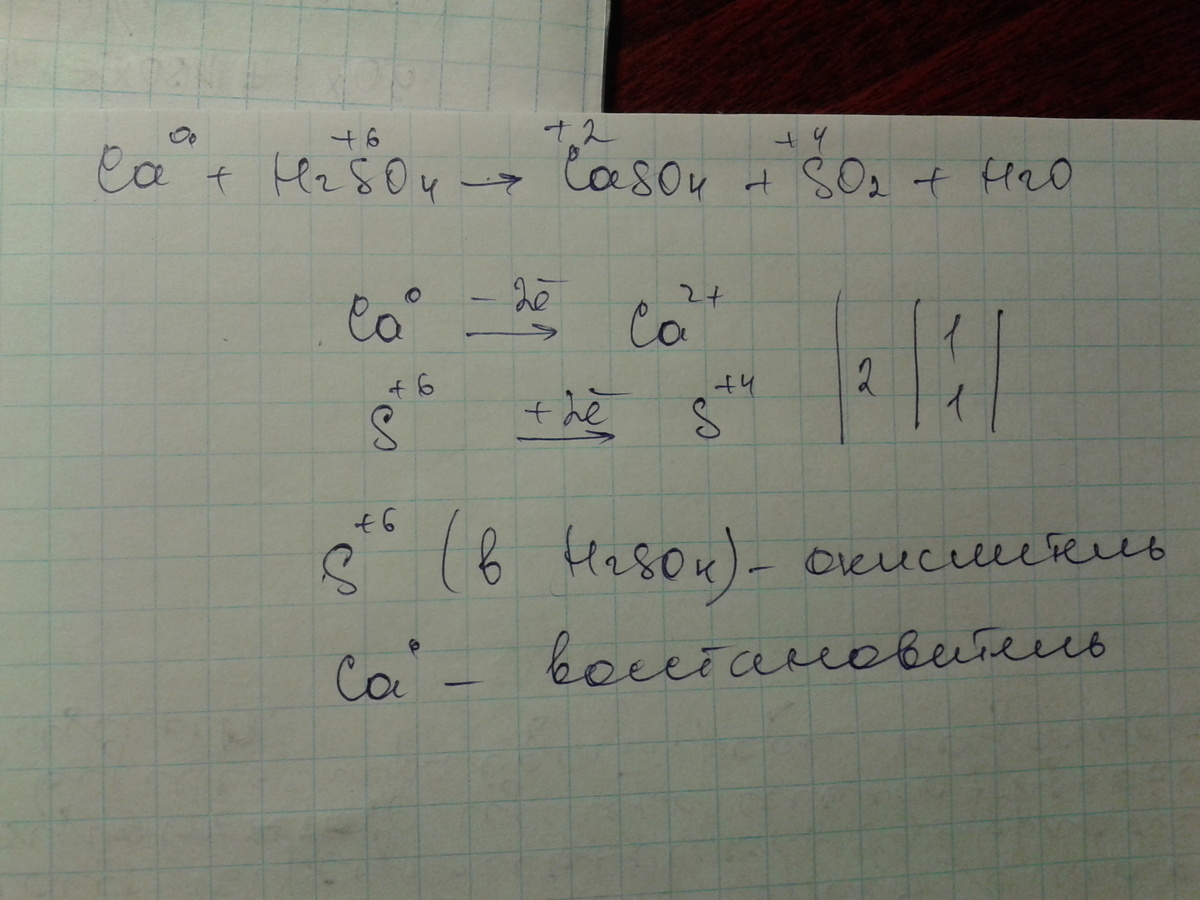 Ca⁰ + H₂S⁺⁶O₄ → Ca⁺²SO₄ + S⁺⁴O₂ + H₂O
Ca⁰ −2ē → Ca²⁺ | 2 | 1 |
S⁺⁶ +2ē → S⁺⁴ | 1 |
S⁺⁶ (в H₂SO₄) – окислитель
Ca⁰ – восстановитель